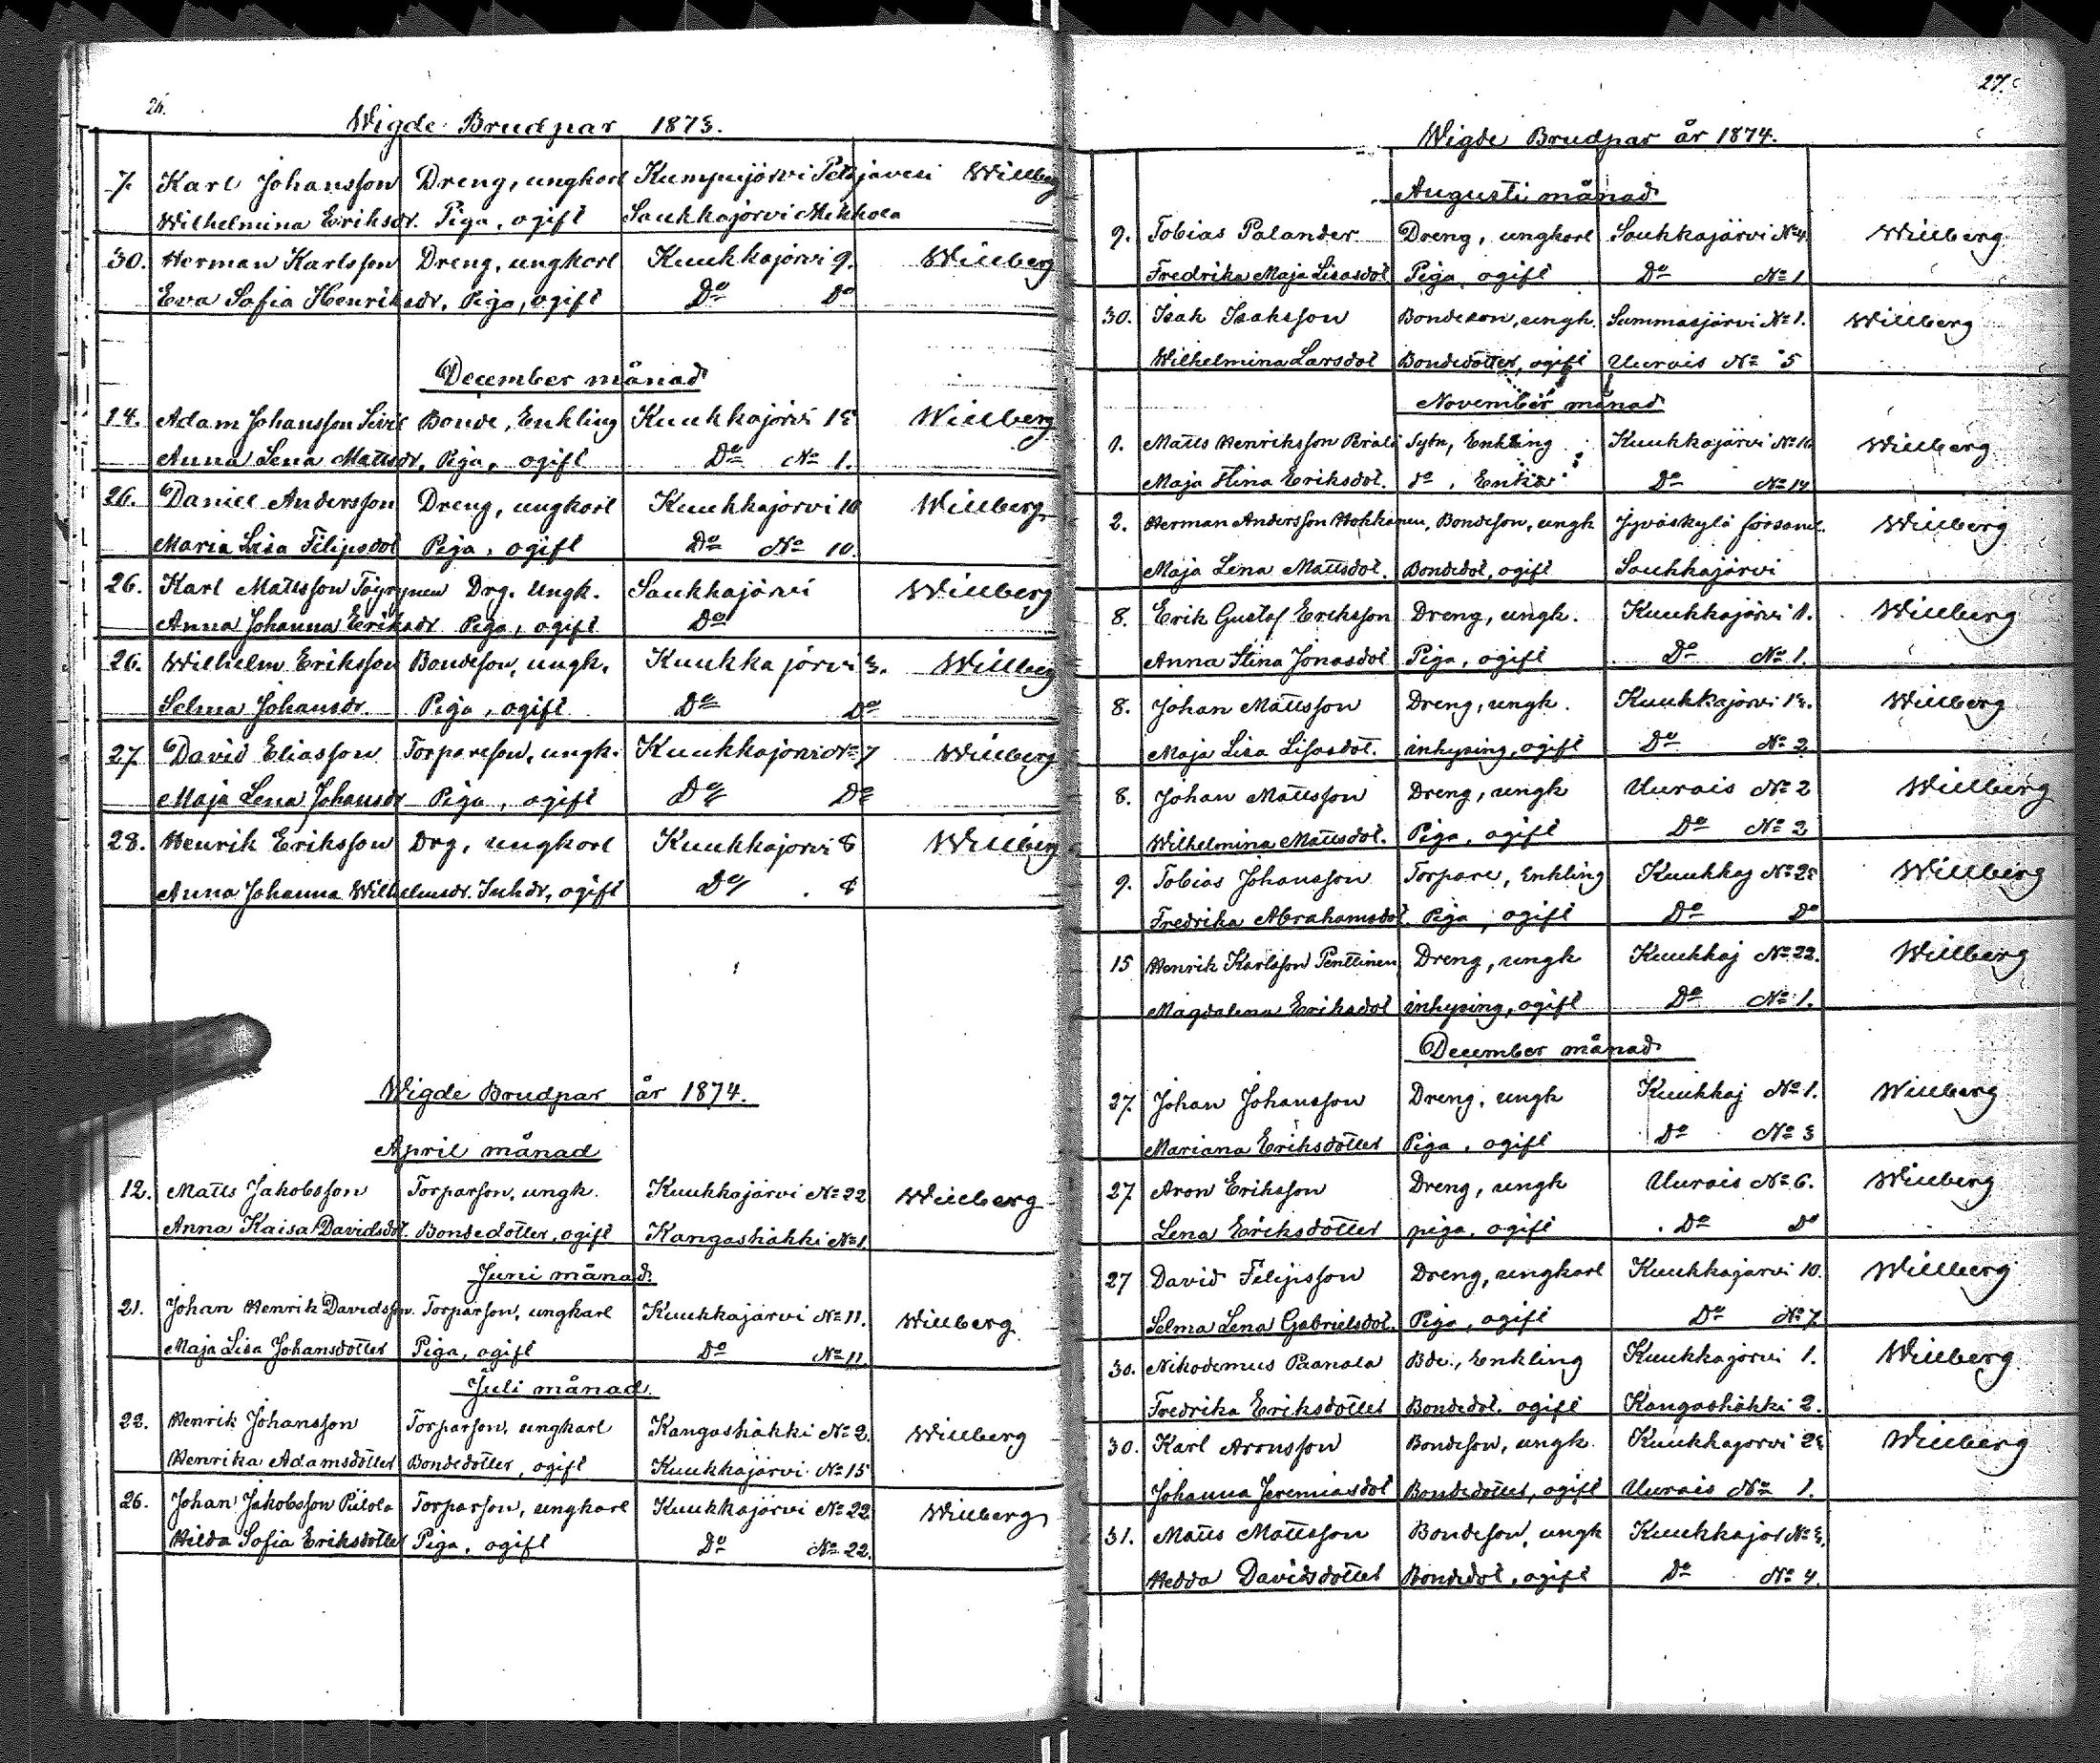 26.
Wigde Brudpar 1873.
7. Karl Johansson Dreng, ungkarl Kumpujärvi Petäjävesi Willberg
Wilhelmina Eriksdr. Piga, ogift Saukkajärvi Mikkola
30. Herman Karlsson Dreng, ungkarl Kuukkajärvi 9. Willberg
Eva Sofia Henriksdr. Piga, ogift Do Do
December månad
14. Adam Johansson Bonde, Enkling Kuukkajärvi 13 Willberg
Anna Lena Mattsdr. Piga, ogift Do No 1.
26. Daniel Andersson Dreng, ungkarl Kuukkajärvi 10 Willberg
Maria Lisa Filipsdot Piga, ogift Do No 10.
26. Karl Mattsson Drg. Ungk. Saukkajärvi Willberg
Anna Johanna Eriksdr Piga, ogift Do
26. Wilhelm Eriksson Bondeson, ungk. Kuukkajärvi 3. Willberg
Selma Johansdr. Piga, ogift Do Do
27 David Eliasson Torpareson, ungk. Kuukkajärvi No 7 Willberg
Maja Lena Johansdr Piga, ogift Do Do
28. Henrik Eriksson Drg, ungkarl Kuukkajärvi 8 Willberg
Anna Johanna Wilhelmsdr. Inhdr, ogift Do 8
Wigde Brudpar år 1874.
April månad
12. Matts Jakobsson Torparson, ungk. Kuukkajärvi No 22 Willberg
Anna Kaisa Davidsdot. Bondedotter, ogift Kangashäkki No 1
Juni månad.
21. Johan Henrik Davidsson. Torparson, ungkarl Kuukkajärvi No 11. Willberg
Maja Lisa Johansdotter Piga, ogift Do No 11.
Juli månad.
22. Henrik Johansson Torparson, ungkarl Kangashäkki No 2. Willberg
Henrika Adamsdotter Bondedotter, ogift Kuukkajärvi No 15
26. Johan Jakobsson Piilola Torparson, ungkarl Kuukkajärvi No 22 Willberg
Hilda Sofia Eriksdotter Piga, ogift Do No 22.
27.
Wigde Brudpar år 1874.
Augusti månad
9. Tobias Palander Dreng, ungkarl Saukkajärvi No 4. Willberg
Fredrika Maja Lisasdot Piga, ogift Do No 1
30. Isak Isaksson Bondeson, ungk. Summasjärvi No 1. Willberg
Wilhelmina Larsdot Bondedotter, ogift Uurais No 5
November månad
1. Matts Henriksson Sytn, Enkling Kuukkajärvi No 16 Willberg
Maja Stina Eriksdot. do, Enka Do No 14
2. Herman Andersson Hokkanen, Bondeson, ungk Jyväskylä församl. Willberg
Maja Lena Mattsdot. Bondedot, ogift Saukkajärvi
8. Erik Gustaf Eriksson Dreng, ungk. Kuukkajärvi 1. Willberg
Anna Stina Jonasdot Piga, ogift Do No 1.
8. Johan Mattsson Dreng, ungk. Kuukkajärvi 13. Willberg
Maja Lisa Lisasdot. inhysing, ogift Do No 2
8. Johan Mattsson Dreng, ungk Uurais No 2 Willberg
Wilhelmina Mattsdot. Piga, ogift Do No 2
9. Tobias Johansson Torpare, Enkling Kuukkaj No 23 Willberg
Fredrika Abrahamsdot. Piga, ogift Do Do
15 Henrik Karlsson Penttinen Dreng, ungk Kuukkaj No 22. Willberg
Magdalena Eriksdot inhysing, ogift Do No 1.
December månad
27. Johan Johansson Dreng, ungk Kuukkaj No 1. Willberg
Mariana Eriksdotter Piga, ogift Do No 3
27 Aron Eriksson Dreng, ungk Uurais No 6. Willberg
Lena Eriksdotter piga, ogift Do Do
27 David Filipsson Dreng, ungkarl Kuukkajärvi 10. Willberg
Selma Lena Gabrielsdot. Piga, ogift Do No 7
30. Nikodemus Paanala Bde., Enkling Kuukkajärvi 1. Willberg
Fredrika Eriksdotter Bondedot. ogift Kangashäkki 2.
30. Karl Aronsson Bondeson, ungk. Kuukkajärvi 23 Willberg
Johanna Jeremiasdot Bondedotter, ogift Uurais No 1.
31. Matts Mattsson Bondeson, ungk Kuukkajär No 3.
Hedda Davidsdotter Bondedot, ogift Do No 4.